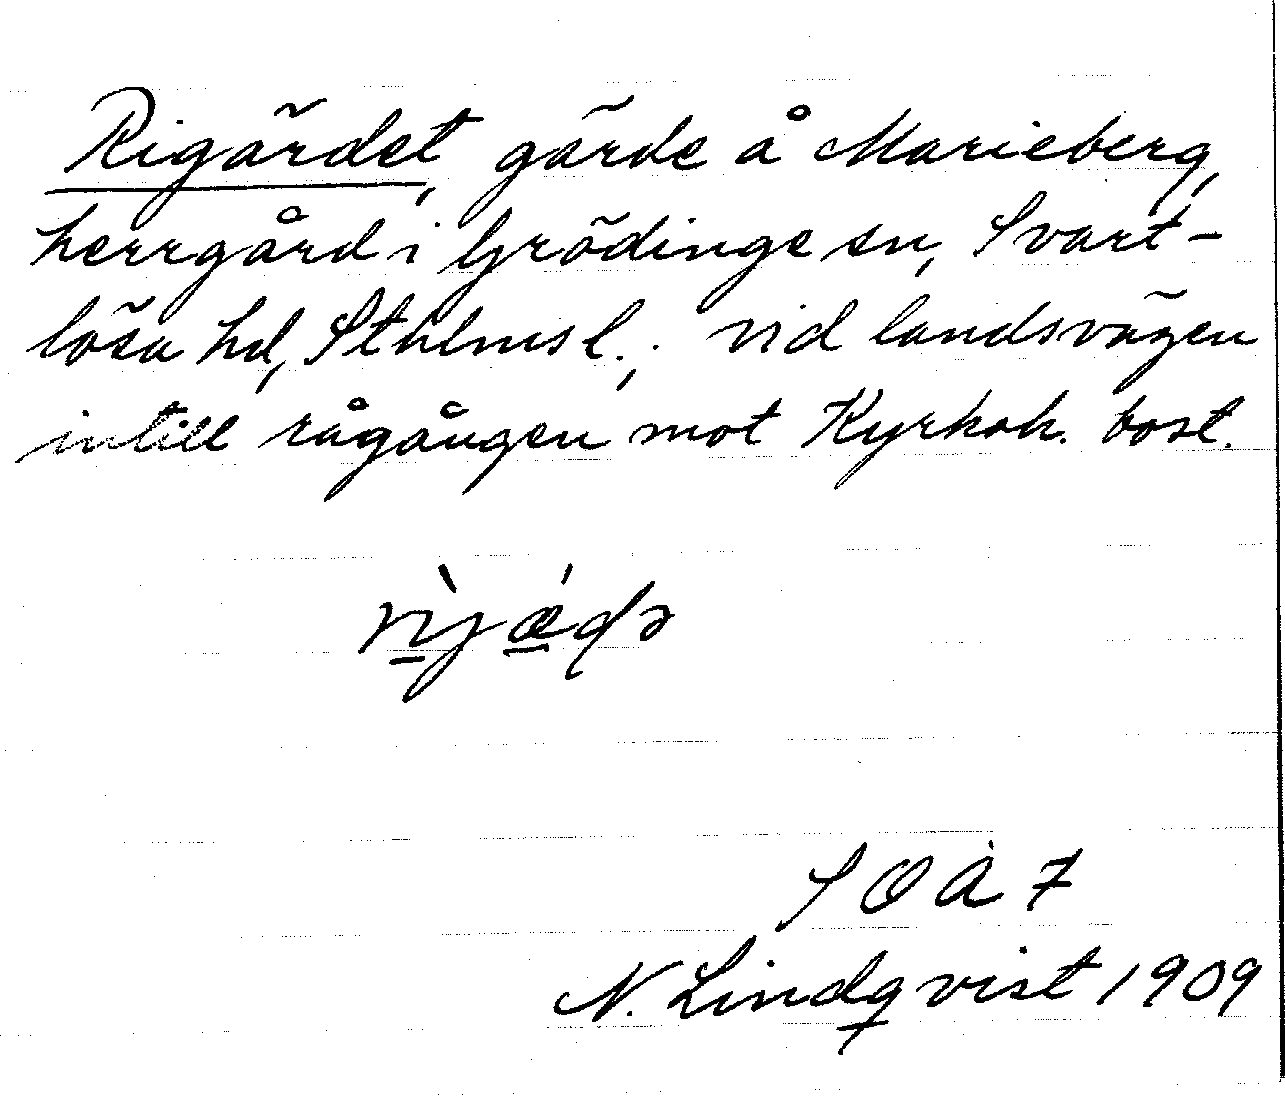 Rigärdet, gärde å Marieberg,
herrgård i Grödinge sn, Svart-
lösa hd, Sthlms l.; vid landsvägen
intill rågången mot Kyrkoh. bost.
SOÅ 7
N. Lindqvist 1909